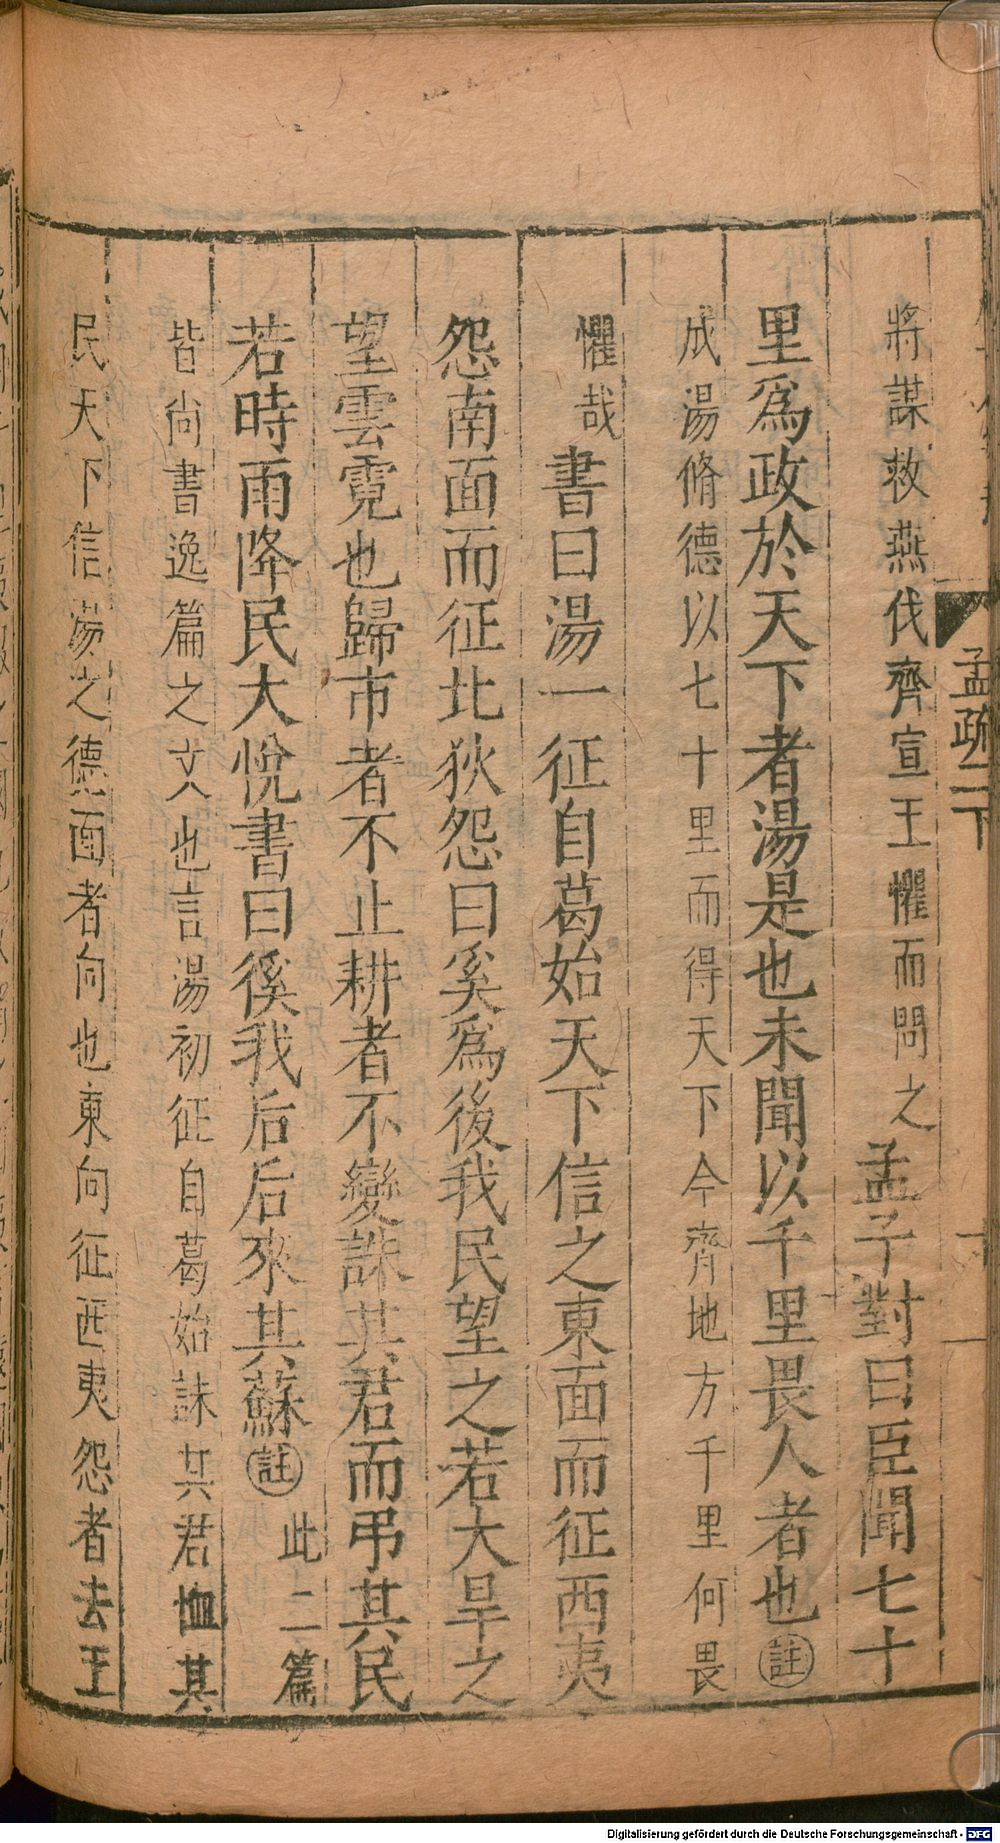 將謀救燕伐齊宣王懼而問之孟子對曰臣聞七十
里爲政於天下者湯是也未聞以千里畏人者也註
成湯脩德以七十里而得天下今齊地方千里何畏
懼哉書曰湯一征自葛始天下信之東面而征西夷
怨南面而征北狄怨曰奚爲後我民望之若大旱之
望雲霓也歸市者不止耕者不變誅其君而弔其民
若時雨降民大悅書曰徯我后后來其蘇註此二篇
皆尚書逸篇之文也言湯初征自葛始誅其君恤其
民天下信湯之德面者向也東向征西夷怨者去王
孟疏二下
Digitalisierung gefördert durch die Deutsche Forschungsgemeinschaft - DFG